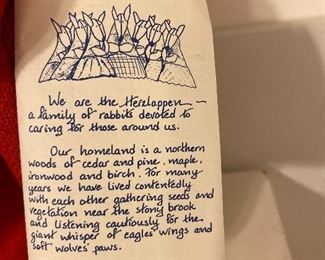 We are the Herzlappen —
a family of rabbits devoted to
caring for those around us.
Our homeland is a northern
woods of cedar and pine, maple,
ironwood and birch. For many
years we have lived contentedly
with each other gathering seeds and
vegetation near the stony brook
and listening cautiously for the
giant whisper of eagles' wings and
soft wolves' paws.